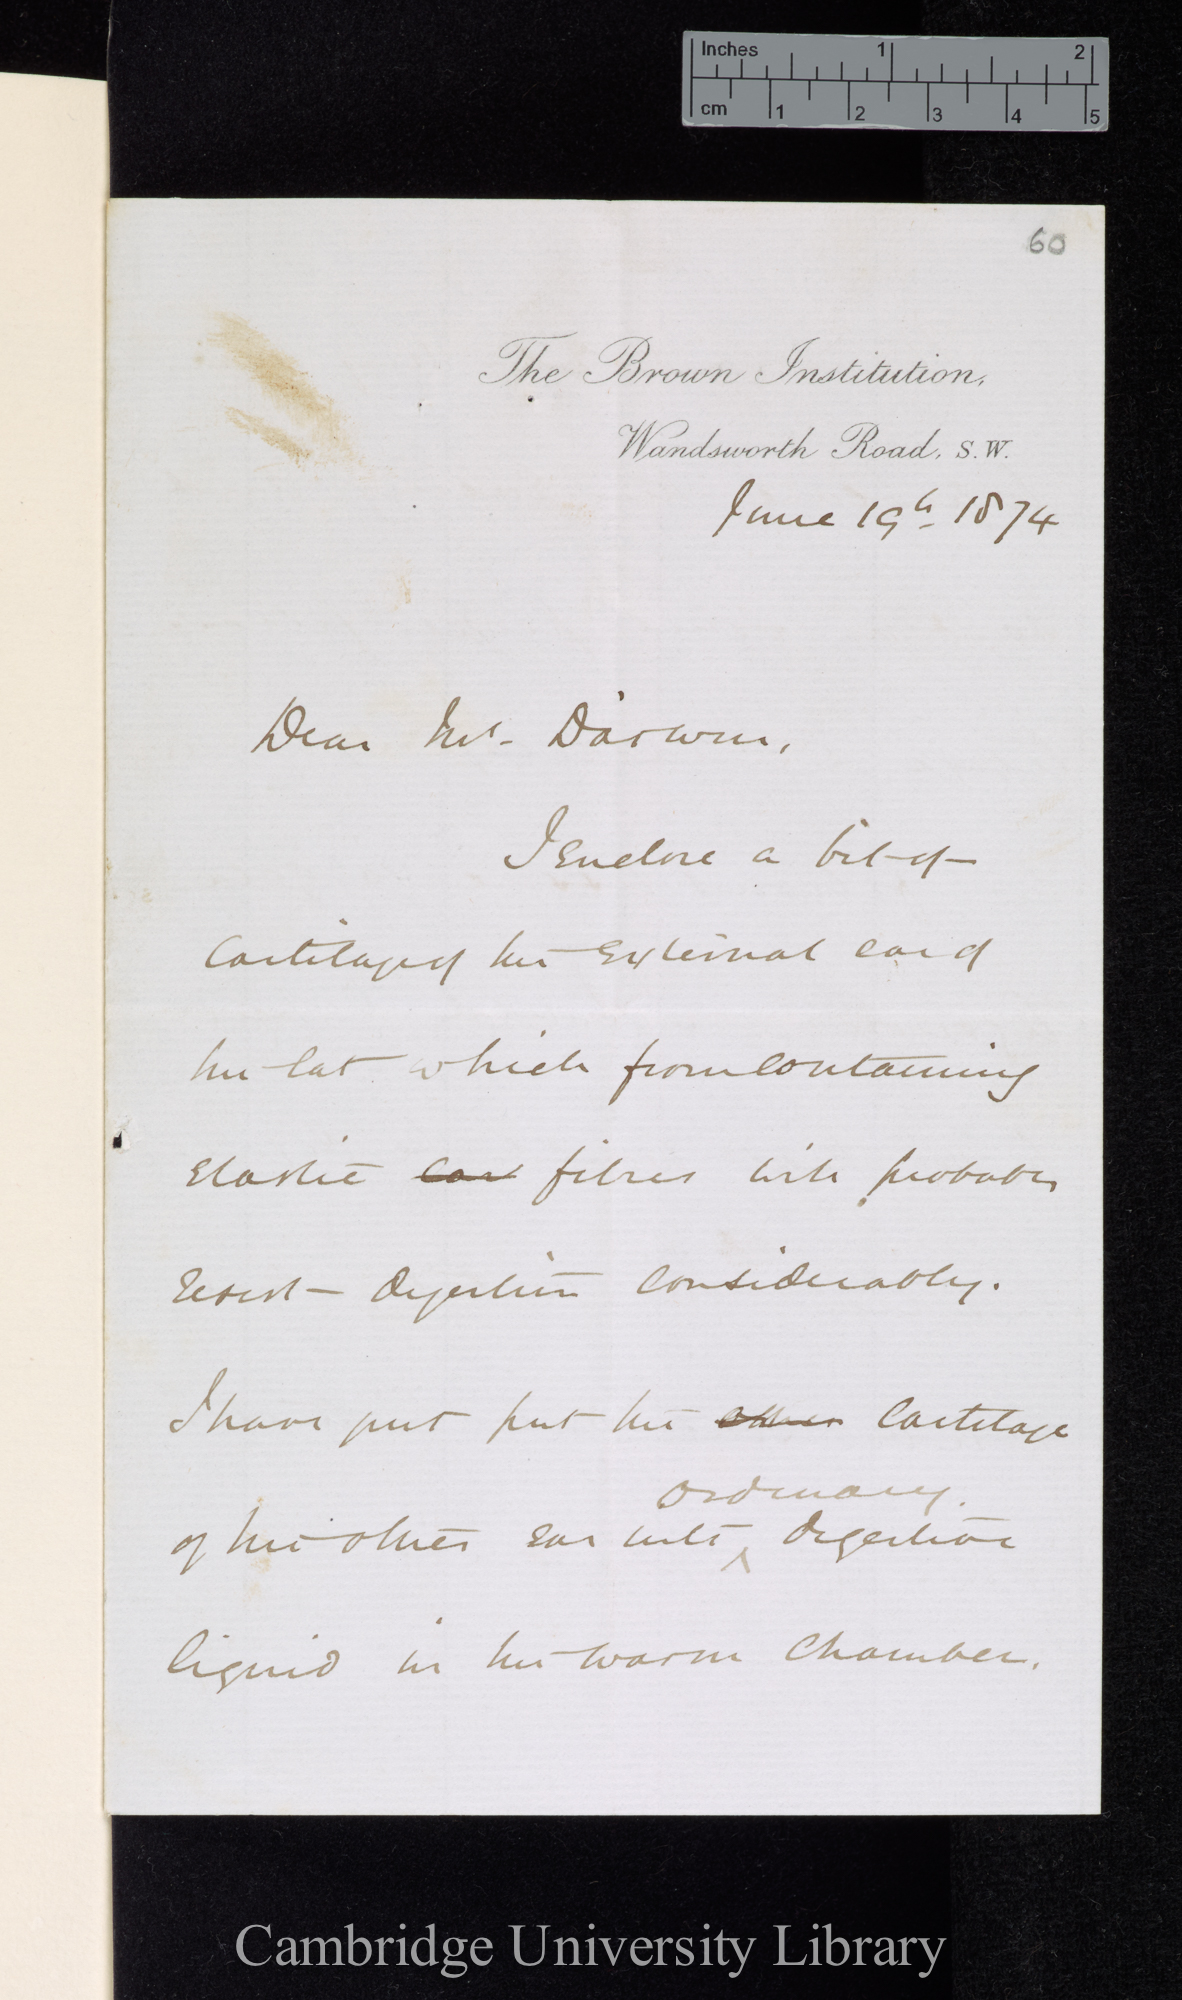 Inches 1 2
cm 1 2 3 4 5
60
The Brown Institution,
Wandsworth Road, S.W.
June 19th. 1874
Dear Mr. Darwin,
I Enclose a bit of
Cartilage of the External ear of
the Cat which from Containing
Elastic fibres will probably
Resist Digestion Considerably.
I have just put the other Cartilage
ordinary
of the other Ear into ^ Digestive
liquid in the warm Chamber.
Cambridge University Library